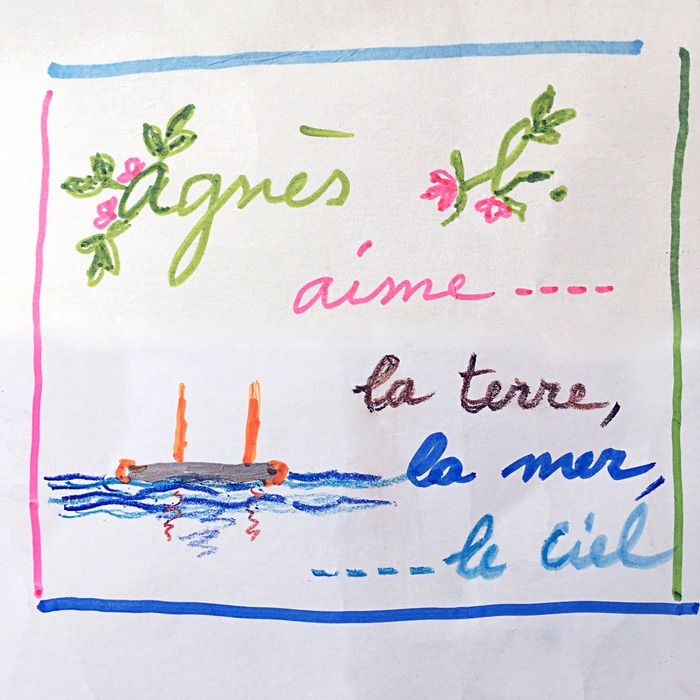 agnès
aime ----
la terre,
la mer,
----le ciel